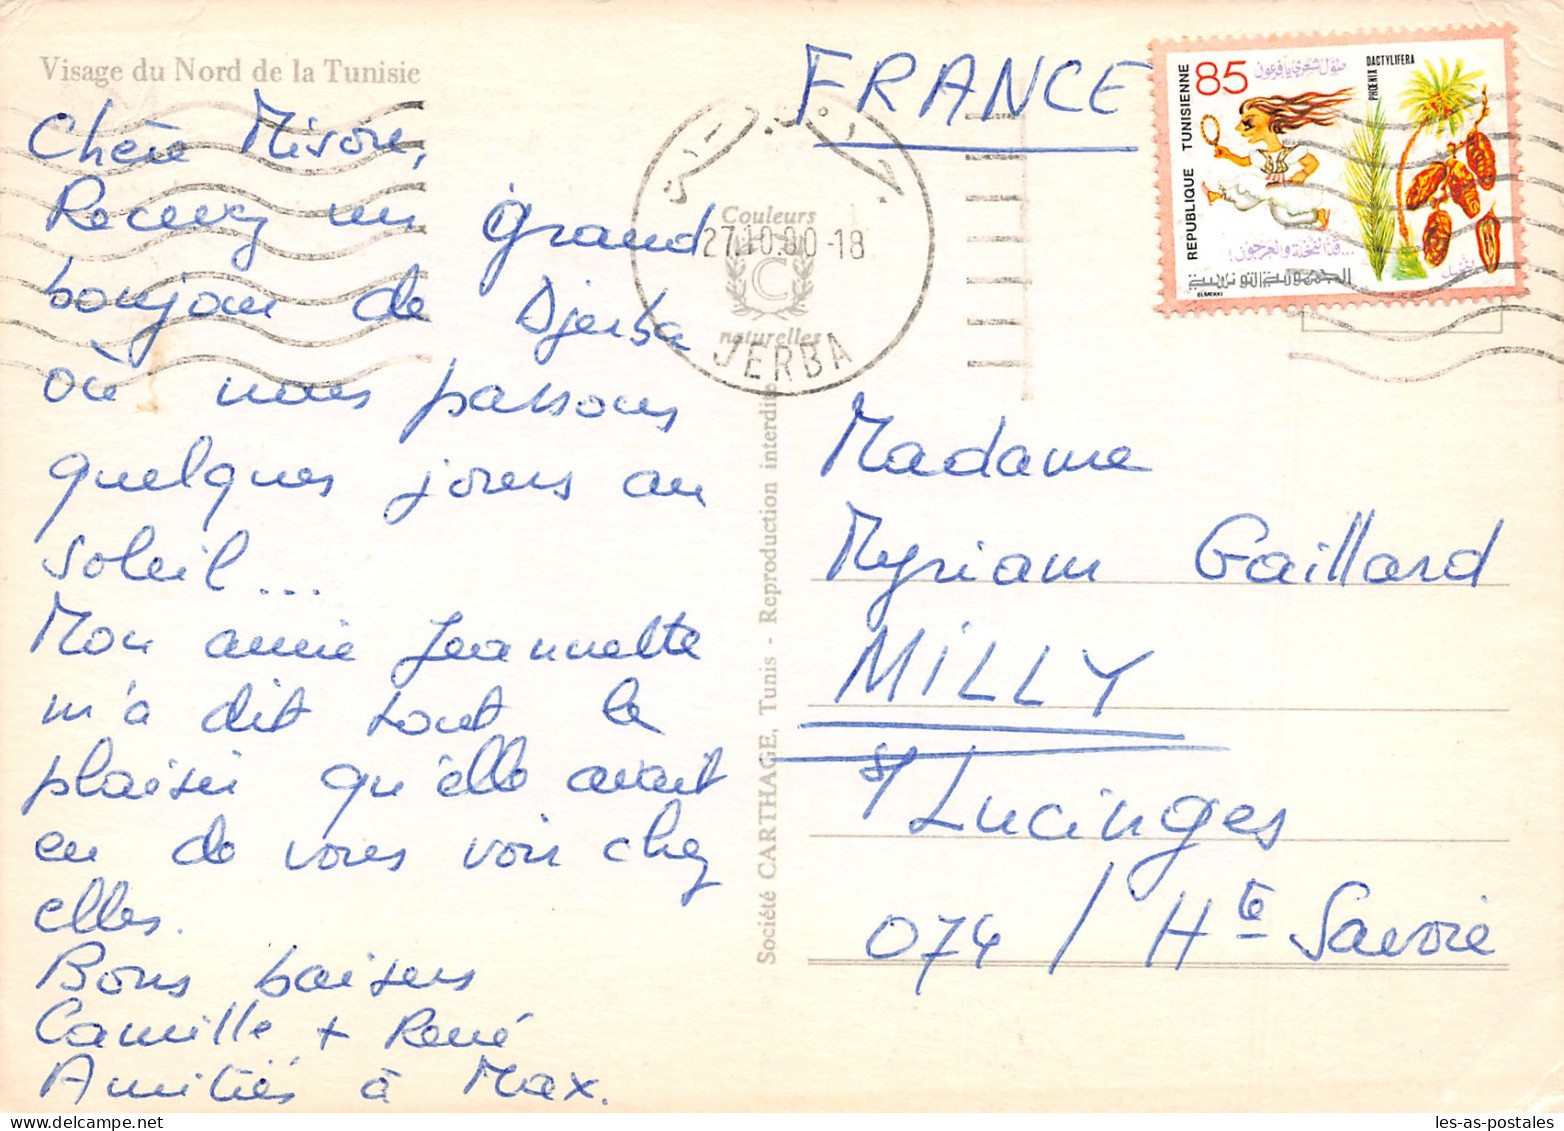 Visage du Nord de la Tunisie
Chère Misou,
Recevez un grand
bonjour de Djerba
où nous passons
quelques jours au
soleil...
Mon amie Jeannette
m'a dit tout le
plaisir qu'elle avait
eu de vous voir chez
elles.
Bons baisers
Camille + René
Amitiés à Max.
Couleurs
27.10.80-18
C
naturelles
JERBA
Société CARTHAGE, Tunis - Reproduction interdite
FRANCE
REPUBLIQUE TUNISIENNE
85
PHOENIX DACTYLIFERA
الجمهورية التونسية
ELMEKKI
Madame
Myriam Gaillard
MILLY
s/ Lucinges
074 / Hte Savoie
les-as-postales